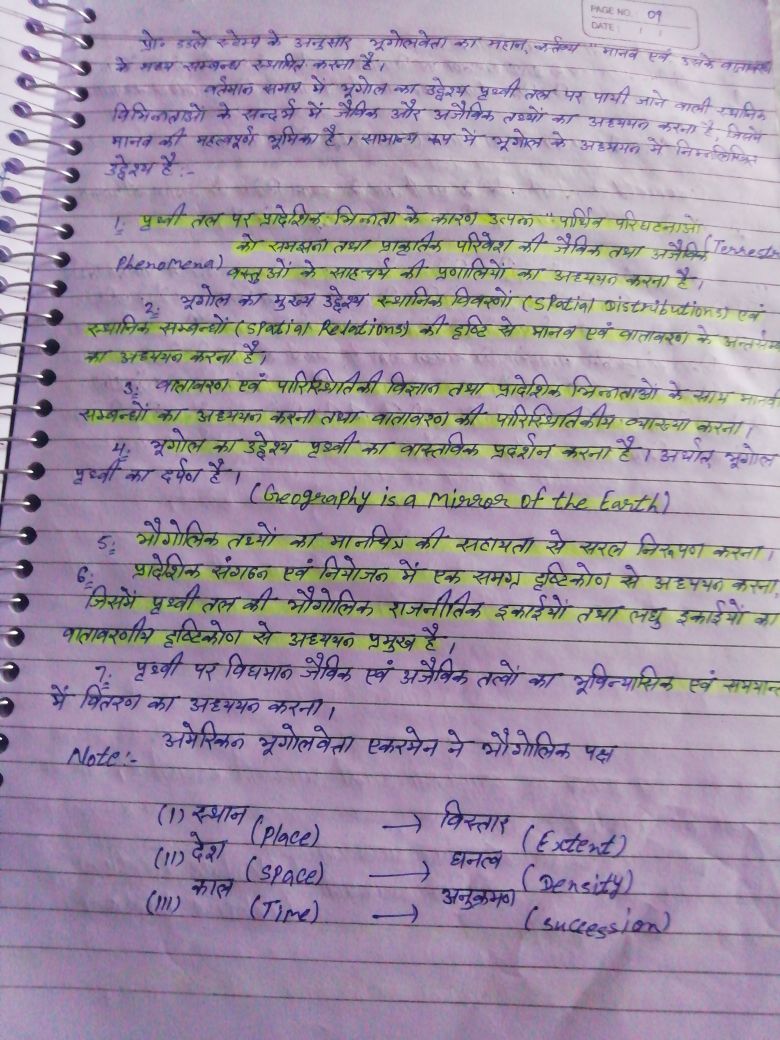 PAGE NO.: 09
DATE: / /
प्रो० डडले स्टेम्प के अनुसार भूगोलवेता का महान, कर्तव्य "मानव एवं उसके वातावरण
के मध्य सम्बन्ध स्थापित करना है।
वर्तमान समय में भूगोल का उद्देश्य पृथ्वी तल पर पायी जाने वाली स्थानिक
विभिन्नताओं के सन्दर्भ में जैविक और अजैविक तथ्यों का अध्ययन करना है, जिसमें
मानव की महत्वपूर्ण भूमिका है। सामान्य रूप में भूगोल के अध्ययन में निम्नलिखित
उद्देश्य है:-
1: पृथ्वी तल पर प्रादेशिक भिन्नता के कारण उत्पन्न "पार्थिव परिघटनाओं
(Terrestri
को समझना तथा प्राकृतिक परिवेश की जैविक तथा अजैविक
Phenomena) वस्तुओं के साहचर्य की प्रणालियों का अध्ययन करना है।
2: भूगोल का मुख्य उद्देश्य स्थानिक विवरणों (Spatial Distributions) एवं
स्थानिक सम्बन्धों (Spatial Relations) की दृष्टि से मानव एवं वातावरण के
का अध्ययन करना है।
3: वातावरण एवं पारिस्थितिकी विज्ञान तथा प्रादेशिक भिन्नताओं के साथ मानव
सम्बन्धों का अध्ययन करना तथा वातावरण की पारिस्थितिकीय व्याख्या करना।
4: भूगोल का उद्देश्य पृथ्वी का वास्तविक प्रदर्शन करना है। अर्थात् भूगोल
पृथ्वी का दर्पण है।
(Geography is a Mirror of the Earth)
5: भौगोलिक तथ्यों का मानचित्र की सहायता से सरल निरूपण करना।
6: प्रादेशिक संगठन एवं नियोजन में एक समग्र दृष्टिकोण से अध्ययन करना,
जिसमें पृथ्वी तल की भौगोलिक राजनीतिक इकाईयों तथा लघु इकाईयों का
वातावरणीय दृष्टिकोण से अध्ययन प्रमुख है।
7: पृथ्वी पर विधमान जैविक एवं अजैविक तत्वों का भूविन्यासिक एवं
में वितरण का अध्ययन करना।
अमेरिकन भूगोलवेता एकरमेन ने भौगोलिक पक्ष
Note:-
(I) स्थान (Place) → विस्तार (Extent)
(II) देश (Space) → घनत्व (Density)
(III) काल (Time) → अनुक्रमण (Succession)